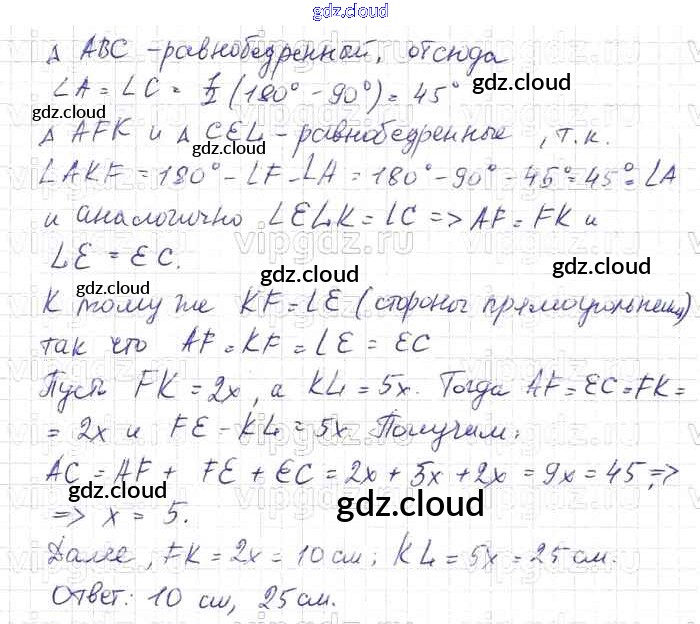 gdz.cloud
Δ ABC - равнобедренный, отсюда
∠A = ∠C = 1/2 (180° - 90°) = 45°
gdz.cloud
gdz.cloud
Δ AFK и Δ CEL - равнобедренные, т.к.
gdz.cloud
∠AKF = 180° - ∠F - ∠A = 180° - 90° - 45° = 45° = ∠A
и аналогично ∠ELK = ∠C => AF = FK и
vipgdz.ru
LE = EC.
gdz.cloud
gdz.cloud
К тому же KF = LE (стороны прямоугольника)
так что AF = KF = LE = EC
Пусть FK = 2x, а KL = 5x. Тогда AF = EC = FK =
= 2x и FE = KL = 5x. Получим:
AC = AF + FE + EC = 2x + 5x + 2x = 9x = 45 =>
gdz.cloud
=> x = 5.
gdz.cloud
Далее, FK = 2x = 10 см; KL = 5x = 25 см.
Ответ: 10 см, 25 см.